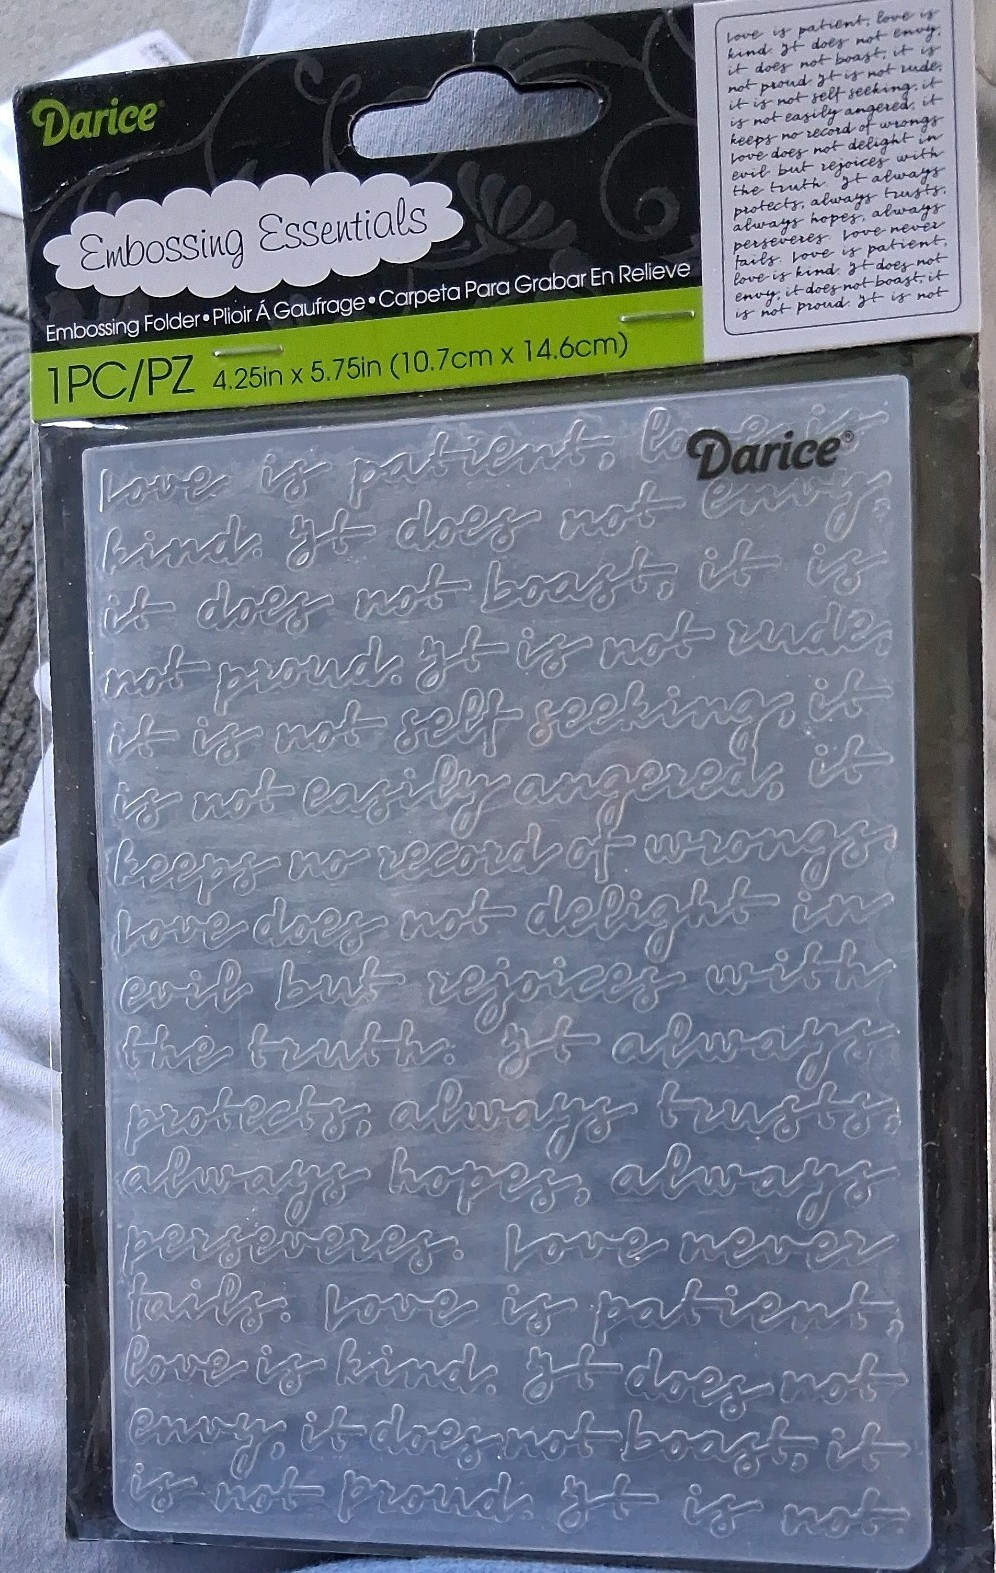 Darice
Embossing Essentials
Embossing Folder • Plioir Á Gaufrage • Carpeta Para Grabar En Relieve
1PC/PZ 4.25in x 5.75in (10.7cm x 14.6cm)
love is patient, love is
kind. It does not envy,
it does not boast, it is
not proud. It is not rude,
it is not self seeking, it
is not easily angered, it
keeps no record of wrongs
Love does not delight in
evil but rejoices with
the truth. It always
protects, always trusts,
always hopes, always
perseveres. Love never
fails. Love is patient,
love is kind. It does not
envy, it does not boast, it
is not proud. It is not
Darice®
Love is patient, love is
kind. It does not envy,
it does not boast, it is
not proud. It is not rude,
it is not self seeking, it
is not easily angered, it
keeps no record of wrongs.
Love does not delight in
evil but rejoices with
the truth. It always
protects, always trusts,
always hopes, always
perseveres. Love never
fails. Love is patient,
love is kind. It does not
envy, it does not boast, it
is not proud. It is not